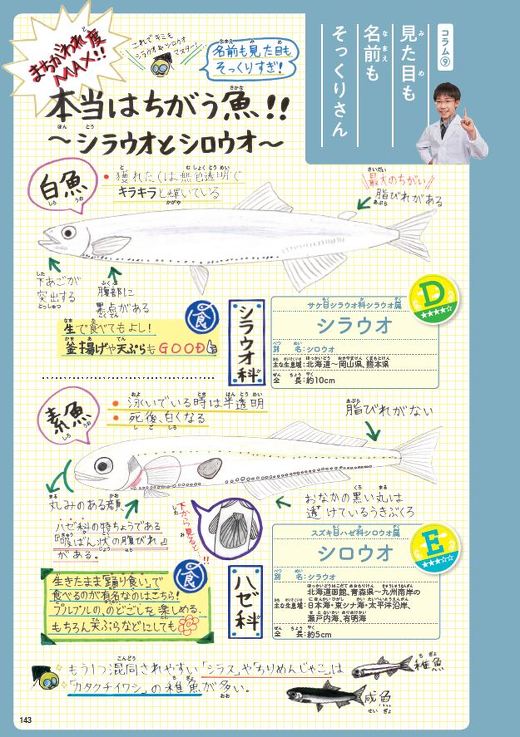 コラム⑨
見た目も
名前も
そっくりさん
まちがわれ度
MAX!!
これでキミも
シラウオ&シロウオ
マスター!
名前も見た目も
そっくりすぎ!
本当はちがう魚!!
～シラウオとシロウオ～
白魚
しらうお
• 獲れたては無色透明で
キラキラと輝いている
最大のちがい
脂びれがある
下あごが
突出する
腹部に
黒点がある
生で食べてもよし!
釜揚げや天ぷらもGOOD
食
シラウオ科
D
サケ目シラウオ科シラウオ属
シラウオ
別名:シロウオ
主な生息域:北海道～岡山県、熊本県
全長:約10cm
素魚
しろうお
• 泳いでいる時は半透明
• 死後、白くなる
脂びれがない
丸みのある顔
ハゼ科の特ちょうである
『吸ばん状の腹びれ』
がある。
下から見ると
おなかの黒い丸は
透けているうきぶくろ
生きたまま「踊り食い」で
食べるのが有名なのはこちら!
プルプルの、のどごしを楽しめる。
もちろん天ぷらなどにしても
食
ハゼ科
E
スズキ目ハゼ科シロウオ属
シロウオ
別名:シラウオ
主な生息域:
北海道函館、青森県～九州南岸の
日本海・東シナ海・太平洋沿岸、
瀬戸内海、有明海
全長:約5cm
もう1つ混同されやすい「シラス」や「ちりめんじゃこ」は
「カタクチイワシ」の稚魚が多い。
稚魚
成魚
143